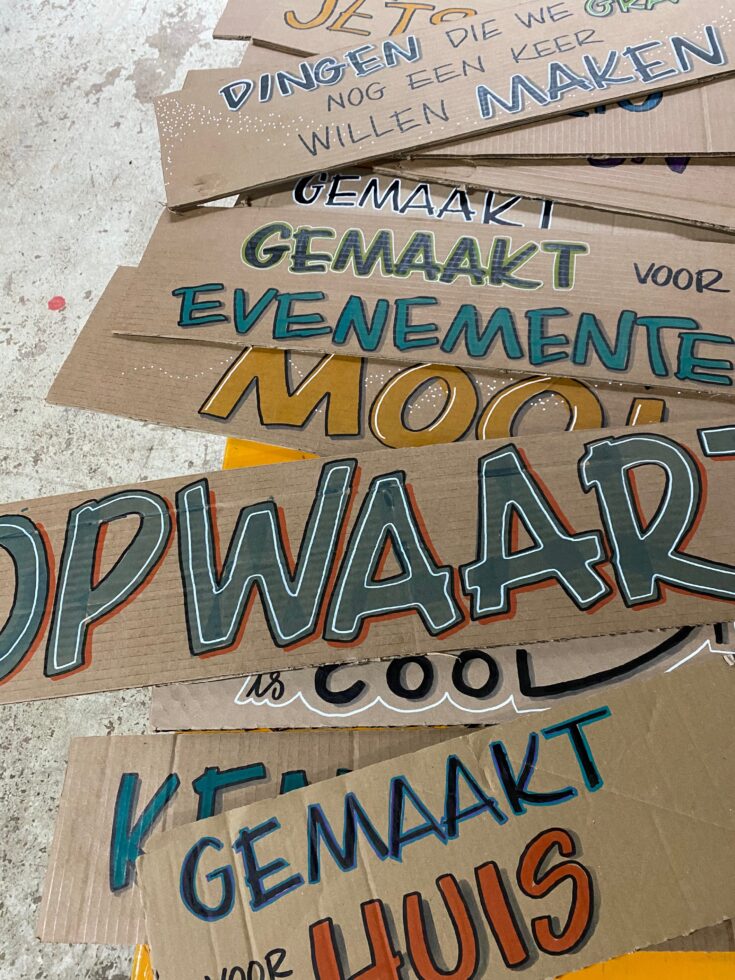 JETS
DINGEN DIE WE GRA
NOG EEN KEER
WILLEN MAKEN
GEMAAKT
GEMAAKT VOOR
EVENEMENTE
MOOI
OPWAART
is COOL
KEN
GEMAAKT
VOOR HUIS